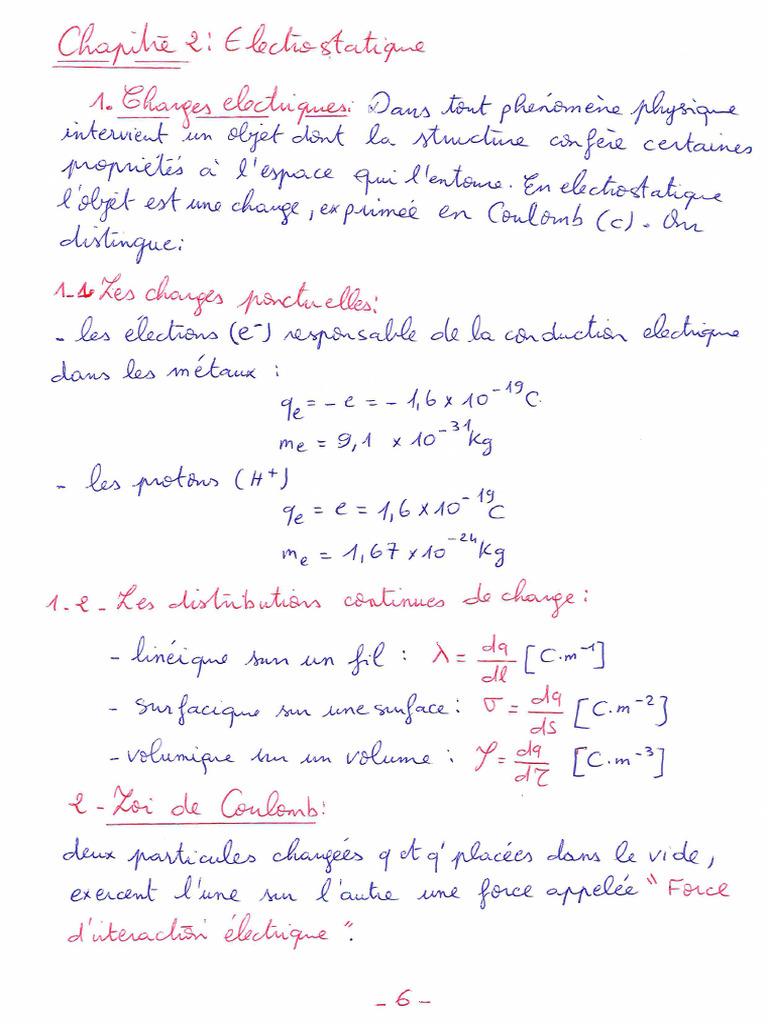 Chapitre 2: Electrostatique
1. Charges electriques: Dans tout phénomène physique
intervient un objet dont la structure confère certaines
propriétés à l'espace qui l'entoure. En electrostatique
l'objet est une charge, exprimée en Coulomb (c). On
distingue:
1-1 Les charges ponctuelles:
- les électrons (e⁻) responsable de la conduction electrique
dans les métaux :
qe = - e = - 1,6 × 10⁻¹⁹ C.
me = 9,1 × 10⁻³¹ Kg
- les protons (H⁺)
qe = e = 1,6 × 10⁻¹⁹ C
me = 1,67 × 10⁻²⁴ Kg
1-2- Les distributions continues de charge :
- linéique sur un fil : λ = dq/dl [C.m⁻¹]
- surfacique sur une surface : σ = dq/ds [C.m⁻²]
- volumique sur un volume : ρ = dq/dτ [C.m⁻³]
2 - Loi de Coulomb:
deux particules chargées q et q' placées dans le vide,
exercent l'une sur l'autre une force appelée " Force
d'interaction électrique ".
- 6 -